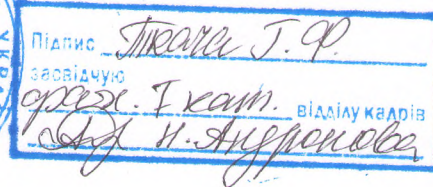 Підпис Ткача Г. Ф.
засвідчую
фах. I кат. відділу кадрів
Н. Андронова